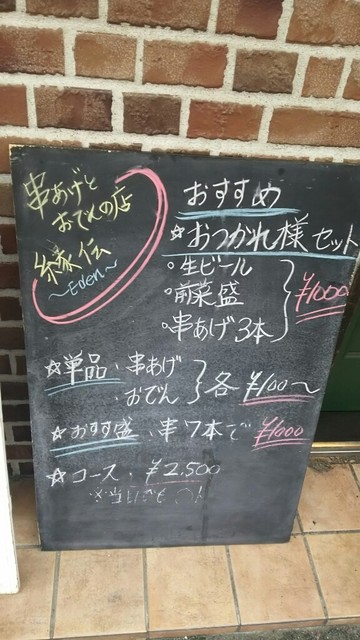 串あげと
おでんの店
縁伝
～Eden～
おすすめ
☆おつかれ様セット
・生ビール
・前菜盛
・串あげ3本
¥1000
☆単品・串あげ
・おでん
各¥100～
☆おすす盛・串7本で¥1000
☆コース・¥2,500